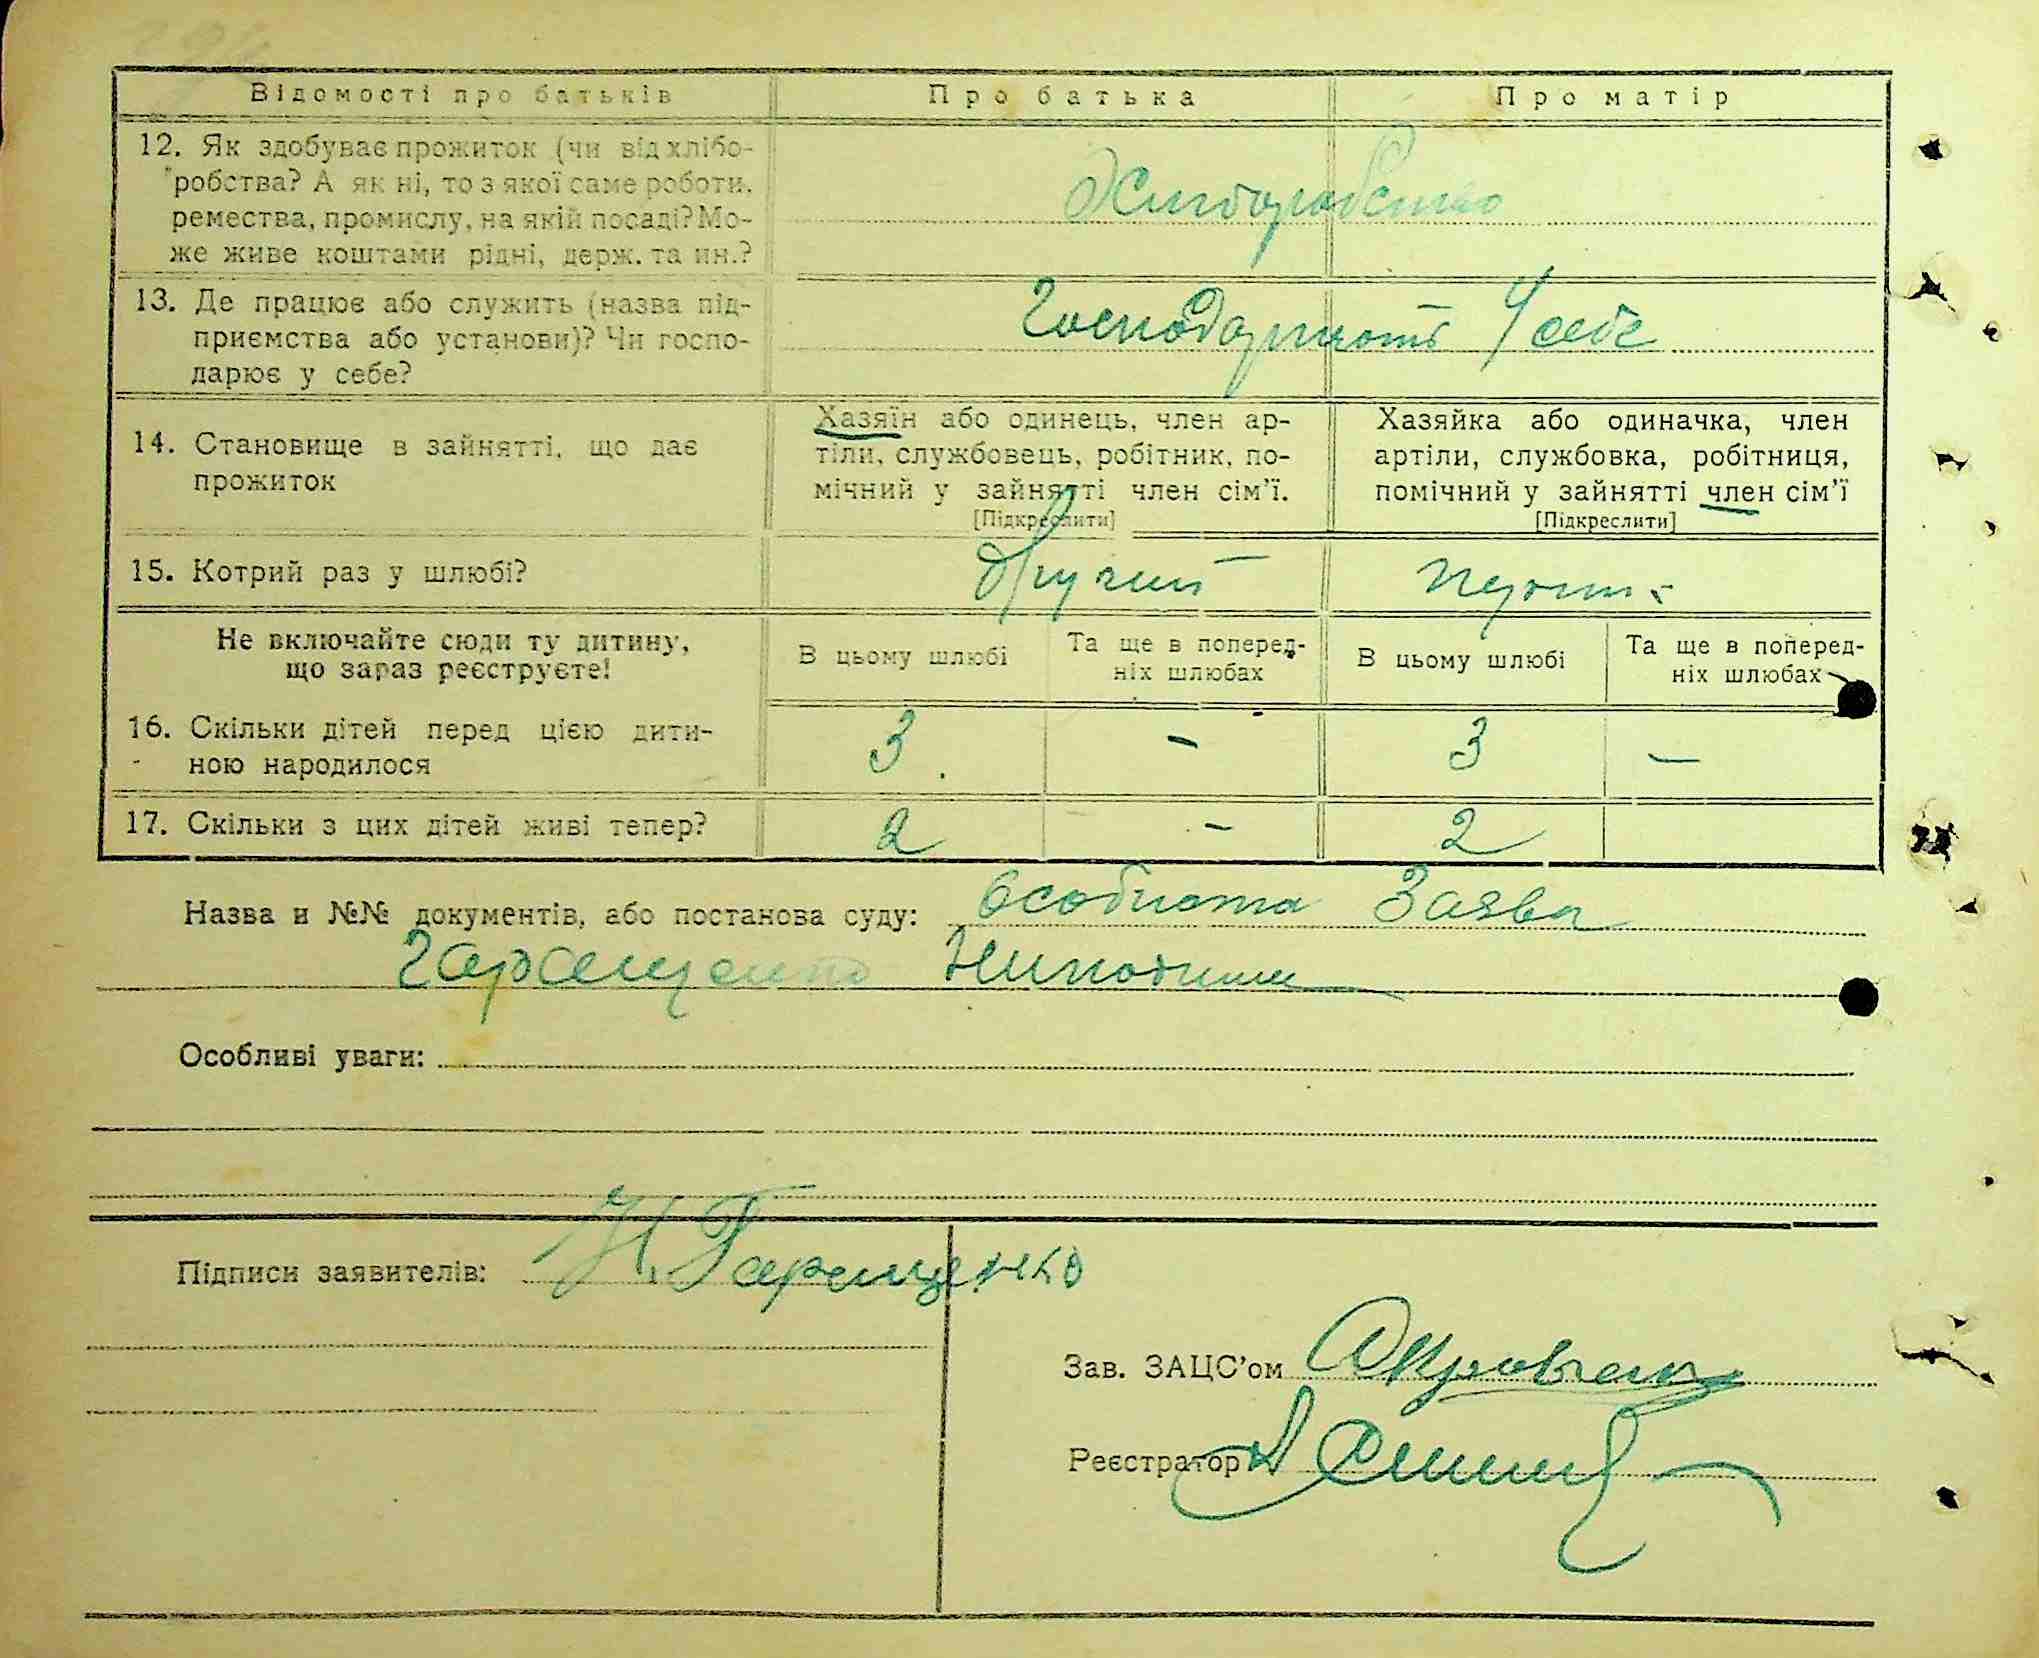 Відомості про батьків Про батька Про матір
12. Як здобуває прожиток (чи від хлібо-
робства? А як ні, то з якої саме роботи,
ремества, промислу, на якій посаді? Мо-
же живе коштами рідні, держ. та ин.?
Хліборобство
13. Де працює або служить (назва під-
приємства або установи)? Чи госпо-
дарює у себе?
Господарюють У себе
14. Становище в зайнятті, що дає
прожиток
Хазяїн або одинець, член ар-
тіли, службовець, робітник, по-
мічний у зайнятті член сім'ї.
[Підкреслити]
Хазяйка або одиначка, член
артіли, службовка, робітниця,
помічний у зайнятті член сім'ї
[Підкреслити]
15. Котрий раз у шлюбі? другий
Не включайте сюди ту дитину,
що зараз реєструєте!
В цьому шлюбі
Та ще в поперед-
ніх шлюбах
В цьому шлюбі
Та ще в поперед-
ніх шлюбах
16. Скільки дітей перед цією дити-
ною народилося
3 - 3 -
17. Скільки з цих дітей живі тепер? 2 - 2
Назва и №№ документів, або постанова суду: Особиста Заява
Гаращенко
Особливі уваги:
Підписи заявителів: Н. Гаращенко
Зав. ЗАЦС'ом
Реєстратор